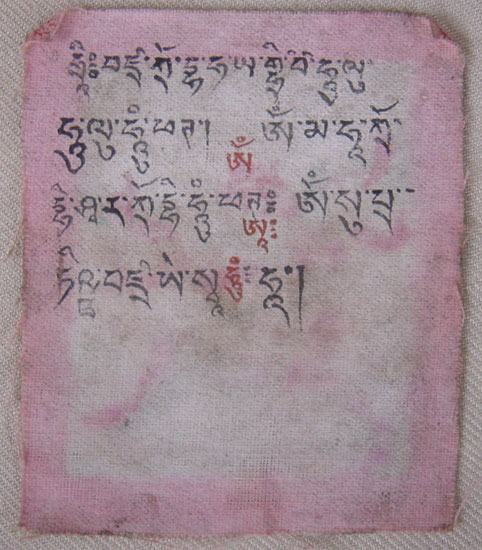 བཛྲ་ཀྲོ་ཧ་ཡ་ཧུ་ལུ་
ཧུ་ལུ་ཧཱུྃ་ཕཊ། ཨོཾ་མ་ཧཱ་ཀྲོ་
ཨོཾ
ཤྭ་ར་ཀྲོ་ཧཱུྃ་ཕཊཿ ཨོཾ་སུ་པྲ་
ཨཱཿ
ཏིཥྛ་བཛྲ་ཡེ་སྭཱ་ཧཱུྃཿ ཧཱ།